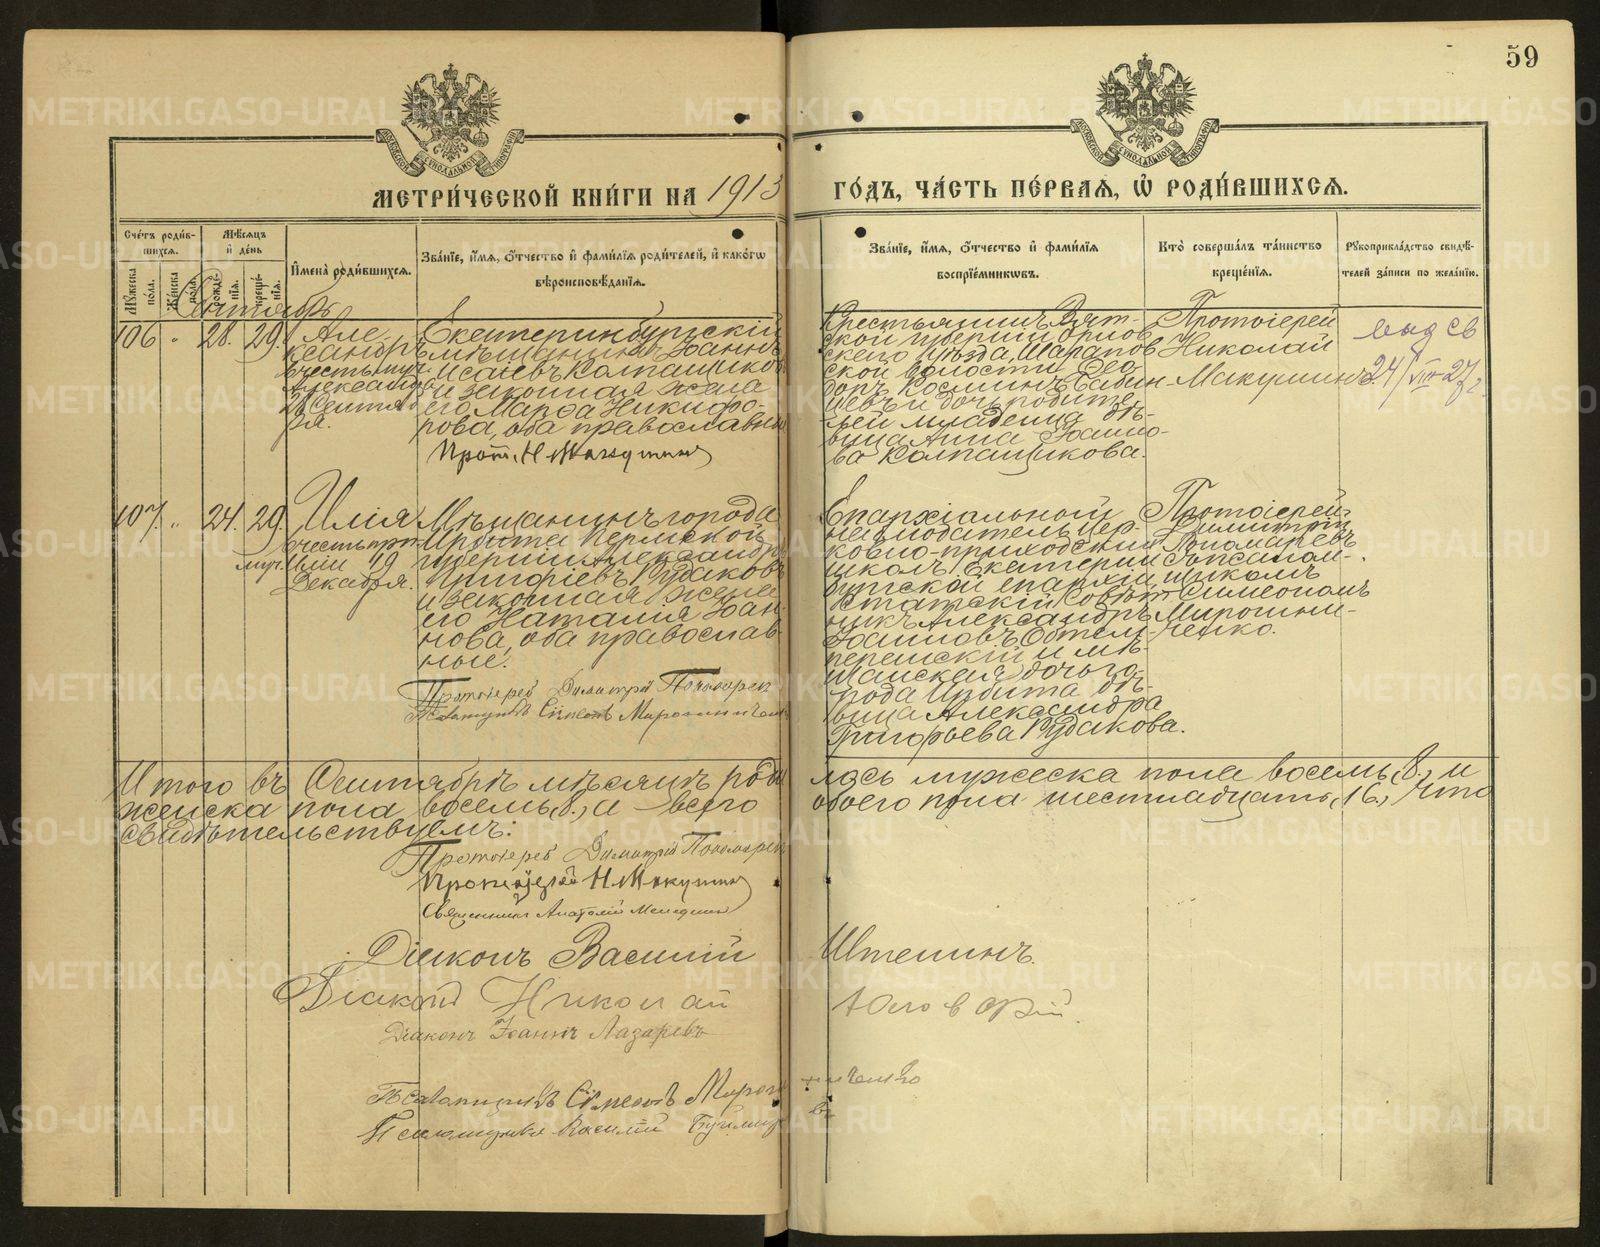 59
МЕТРИ́ЧЕСКОЙ КНИ́ГИ НА 1913
ГО́ДЪ, ЧА́СТЬ ПЕ́РВАЯ, Ѡ҆ РОДИ́ВШИХСЯ.
Сче́тъ роди́в-
шихся.
Мꙋ́жеска
пола.
Же́нска
пола.
Мѣ́сяцъ
и҆ де́нь
рожде́-
нїя.
креще́-
нїя.
И҆мена̀ роди́вшихся.
Зва́нїе, и҆́мя, ѻ҆́тчество и҆ фами́лїя роди́телей, и҆ како́гѡ
вѣроисповѣ́данїя.
Зва́нїе, и҆́мя, ѻ҆́тчество и҆ фами́лїя
воспрїе́мникѡвъ.
Кто̀ соверша́лъ та́инство
креще́нїя.
Рꙋкоприкла́дство свидѣ́-
телей за́писи по жела́нїю.
Сентябрь
106 " 28. 29.
Але
ксандръ
въ честь муч.
Александра
28 Сентяб
ря.
Екатеринбургскій
мѣщанинъ Іоаннъ
Исаевъ Колпащиковъ
и законная жена
его Марфа Никифо-
рова, оба православные
Прот. Н Макушинъ
Крестьянинъ Вят-
ской губерніи Орлов
скаго уѣзда, Шарапов
ской волости Ѳео
доръ Косминъ
и дочь родите-
лей младенца дѣ-
вица Анна Іоанно-
ва Колпащикова.
Протоіерей
Николай
Макушинъ
выд св
24/VIII-27 г.
107. " 24. 29.
Илія
въ честь прп.
муч. Иліи 19
Декабря.
Мѣщанинъ города
Ирбита Пермской
губерніи Александръ
Григоріевъ Рудаковъ
и законная жена
его Наталія Іоан-
нова, оба православ-
ные.
Протоіерей Димитрій Пономарев
Псаломщикъ Сімеонъ Мирошниченко
Епархіальный
наблюдатель цер-
ковно-приходскихъ
школъ Екатерин
бургской епархіи
Статскій Совѣт
никъ Александръ
Іоанновъ Обтем-
перанскій и мѣ-
щанская дочь го-
рода Ирбита дѣ-
вица Александра
Григорьева Рудакова.
Протоіерей
Димитрій
Пономаревъ
съ псалом-
щикомъ
Симеономъ
Мирошни-
ченко.
Итого въ Сентябрѣ мѣсяцѣ роди
лось мужеска пола восемь (8.) и
женска пола восемь (8.) а всего
обоего пола шестнадцать (16.) что
свидѣтельствуемъ:
Протоіерей Димитрій Пономарев
Протоіерей Н Макушинъ
Священникъ Анатолій
Діаконъ Василій Итенинъ.
Діаконъ Николай
Діаконъ Іоаннъ Лазаревъ
Псаломщикъ Сімеонъ Мирошниченко
Псаломщикъ Василій
METRIKI.GASO-URAL.RU